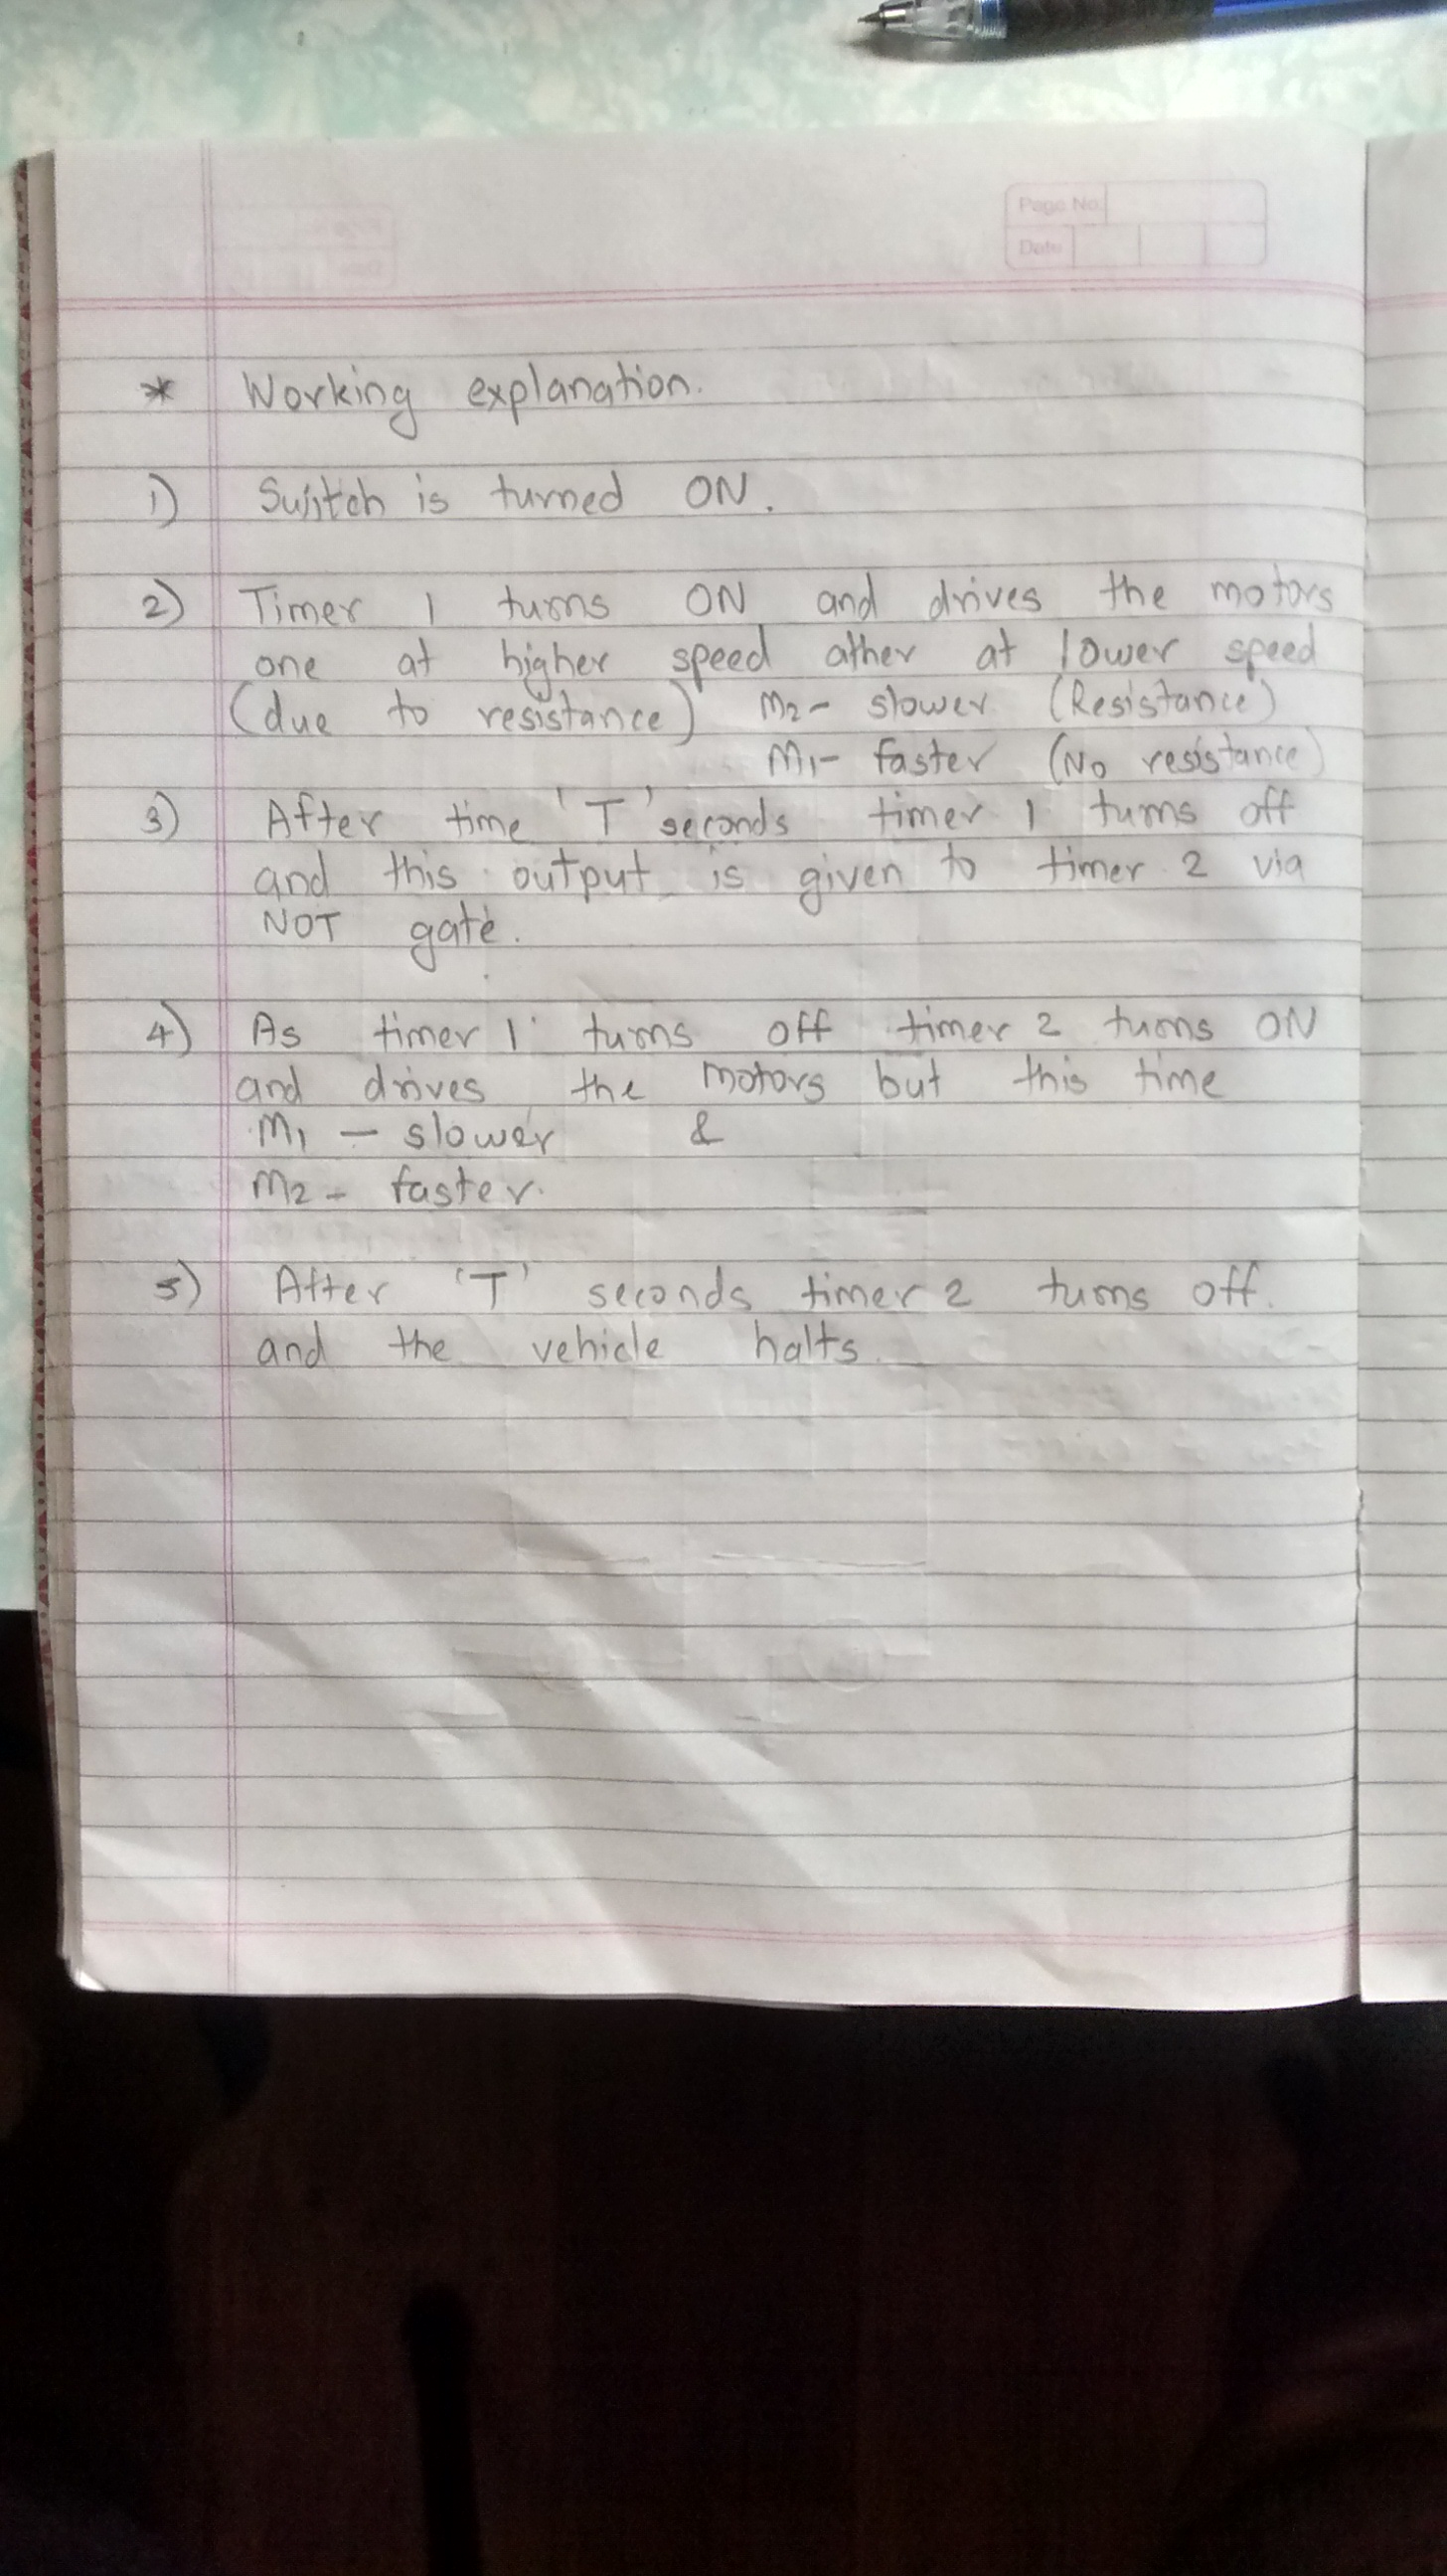 Page No.
Date
* Working explanation.
1) Switch is turned ON.
2) Timer 1 turns ON and drives the motors
one at higher speed ather at lower speed
(due to resistance) M2- slower (Resistance)
M1- faster (No resistance)
3) After time 'T' seconds timer 1 turns off
and this output is given to timer 2 via
NOT gate.
4) As timer 1 turns off timer 2 turns ON
and drives the motors but this time
M1 - slower &
M2 - faster.
5) After 'T' seconds timer 2 turns off.
and the vehicle halts.